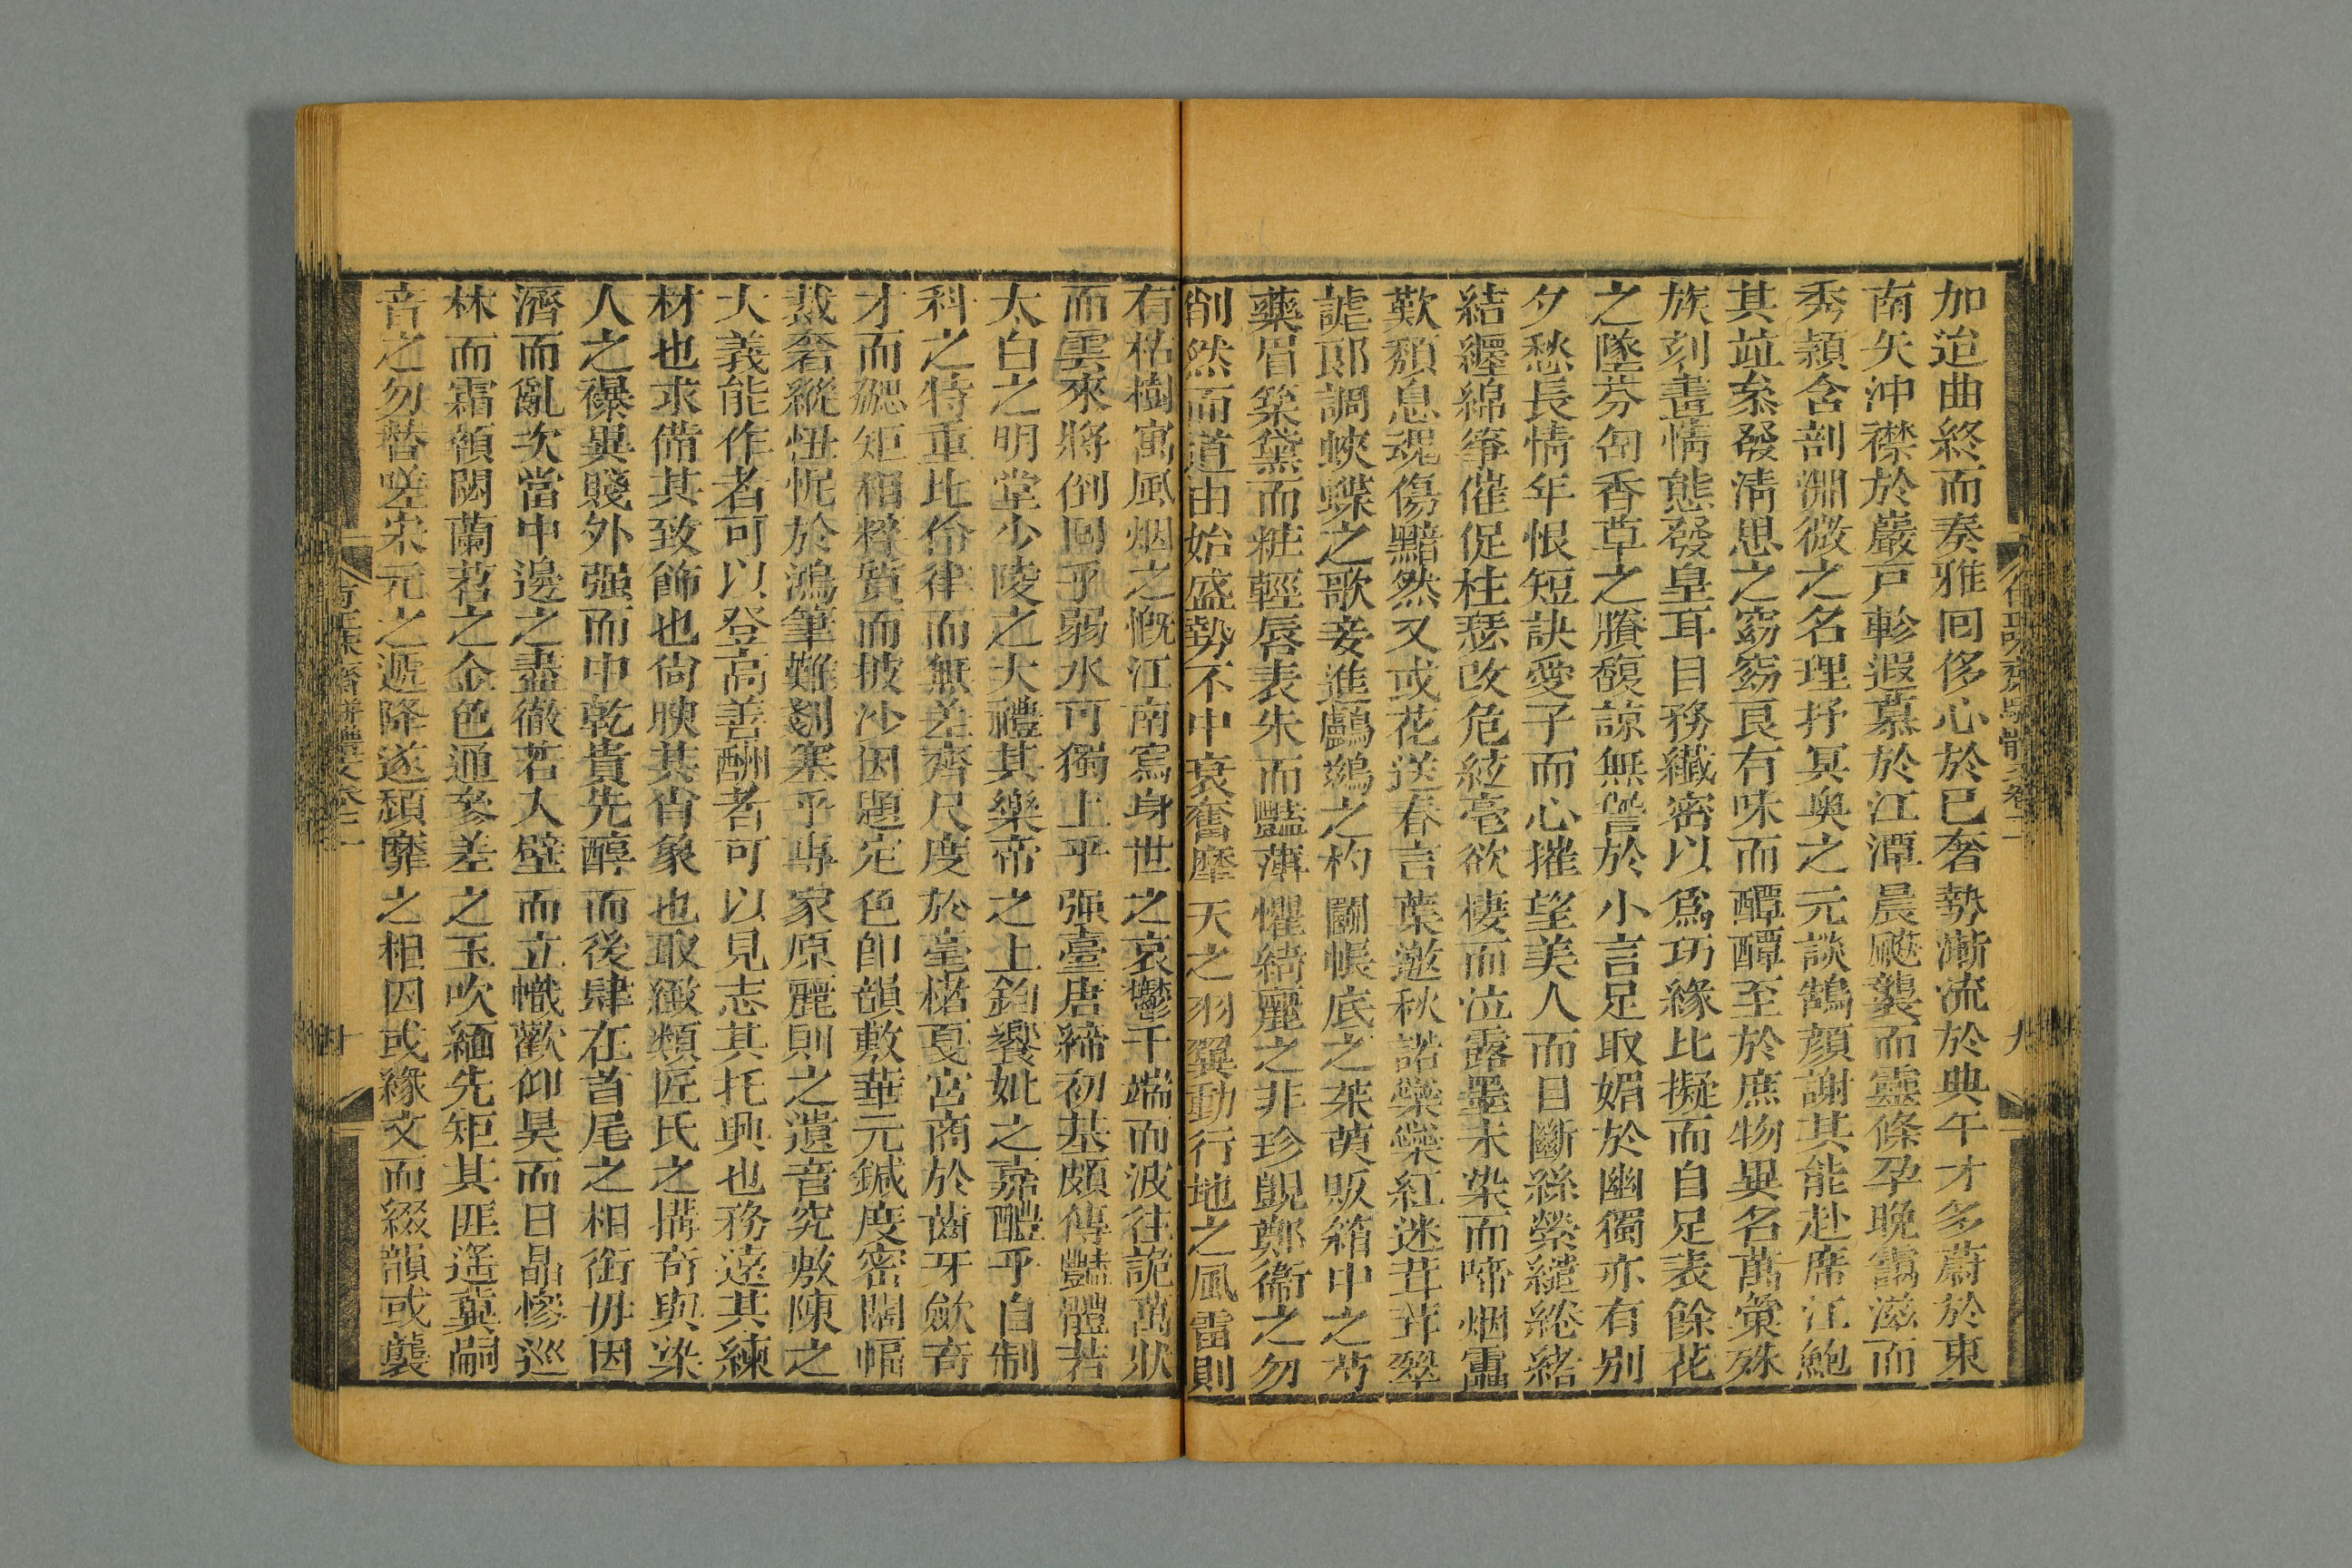 加迨曲終而奏雅回侈心於已奢勢漸流於典午才多蔚於東
南矢沖襟於巖戸軫遐慕於江潭晨颸襲而靈條孕晩靄滋而
秀穎含剖淵微之名理抒冥奥之元談鵠顔謝其能赴席江鮑
其竝叅發淸思之窈窈艮有味而醰醰至於庶物異名萬彙殊
族刻畫情態發皇耳目務纎密以爲巧緣比擬而自足表餘花
之墜芬匄香草之賸馥諒無訾於小言足取媚於幽獨亦有别
夕愁長情年恨短訣愛子而心摧望美人而目斷絲縈繾綣緒
結纒綿筝催促柱瑟改危絃亳欲棲而泣露墨未染而啼烟靁
歎頹息魂傷黯然又或花送春言葉邀秋諾欒欒紅迷茸茸翠
謔郎調蛺蝶之歌妾進鸕鷀之杓闢帳底之茱萸販箱中之芍
藥眉築黛而粧輕唇表朱而豔薄懼綺麗之非珍覬鄭衞之勿
削然而道由始盛勢不中衰奮摩天之羽翼動行地之風雷則
有枯樹寓風烟之慨江南寫身世之哀鬱千端而波往詭萬狀
而雲來將倒囘乎弱水可獨上乎强臺唐締初基頗傳豔體若
太白之明堂少陵之大禮其樂帝之上鈞饗妣之嘉醴乎自制
科之特重比俗律而無差齊尺度於毫楮戛宮商於齒牙歛奇
才而勰矩稍粹質而披沙因題定色卽韻敷華元鍼度密闊幅
裁奢縱忸怩於鴻筆難剗塞乎專家原麗則之遺音究敷陳之
大義能作者可以登高善酬者可以見志其托興也務遠其練
材也求備其致飾也尙腴其肖象也取緻類匠氏之搆奇與染
人之襮異賤外强而中乾貴先醇而後肆在首尾之相銜毋因
濟而亂次當中邊之盡徹若入壁而立幟歡仰昊而日晶慘巡
林而霜領閟蘭苕之金色通參差之玉吹緬先矩其匪遥冀嗣
音之勿替嗟宋元之遞降遂頹靡之相因或緣文而綴韻或襲